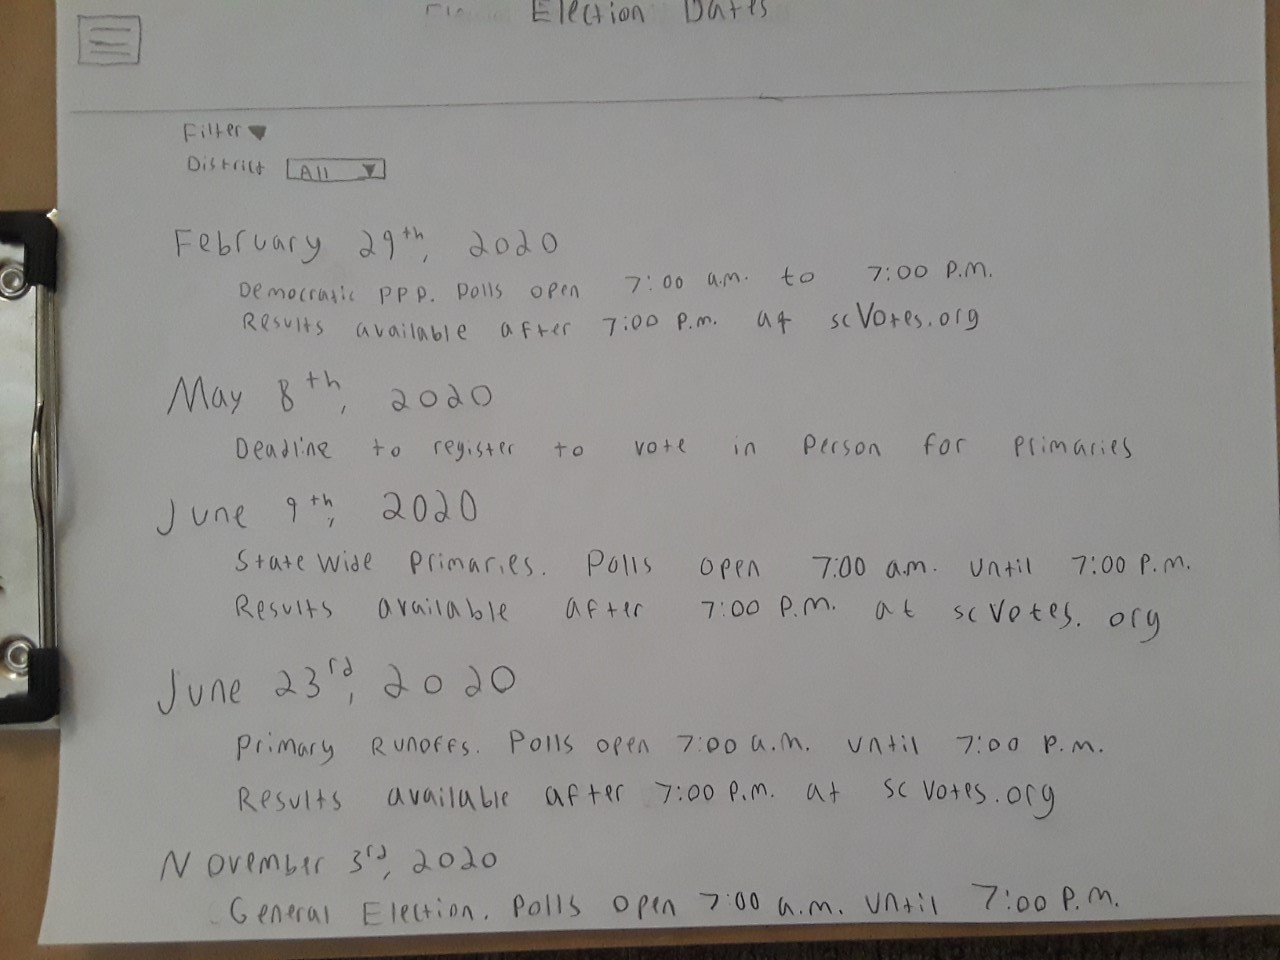 Election Dates
Filter
District All
February 29th, 2020
Democratic PPP. Polls open 7:00 a.m. to 7:00 P.M.
Results available after 7:00 P.m. at scVotes.org
May 8th, 2020
Deadline to register to vote in Person for Primaries
June 9th, 2020
StateWide Primaries. Polls open 7:00 a.m. Until 7:00 P.M.
Results available after 7:00 P.M. at scVotes.org
June 23rd, 2020
Primary Runoffs. Polls open 7:00 a.m. until 7:00 P.M.
Results available after 7:00 P.M. at scVotes.org
November 3rd, 2020
General Election. Polls open 7:00 a.m. Until 7:00 P.M.